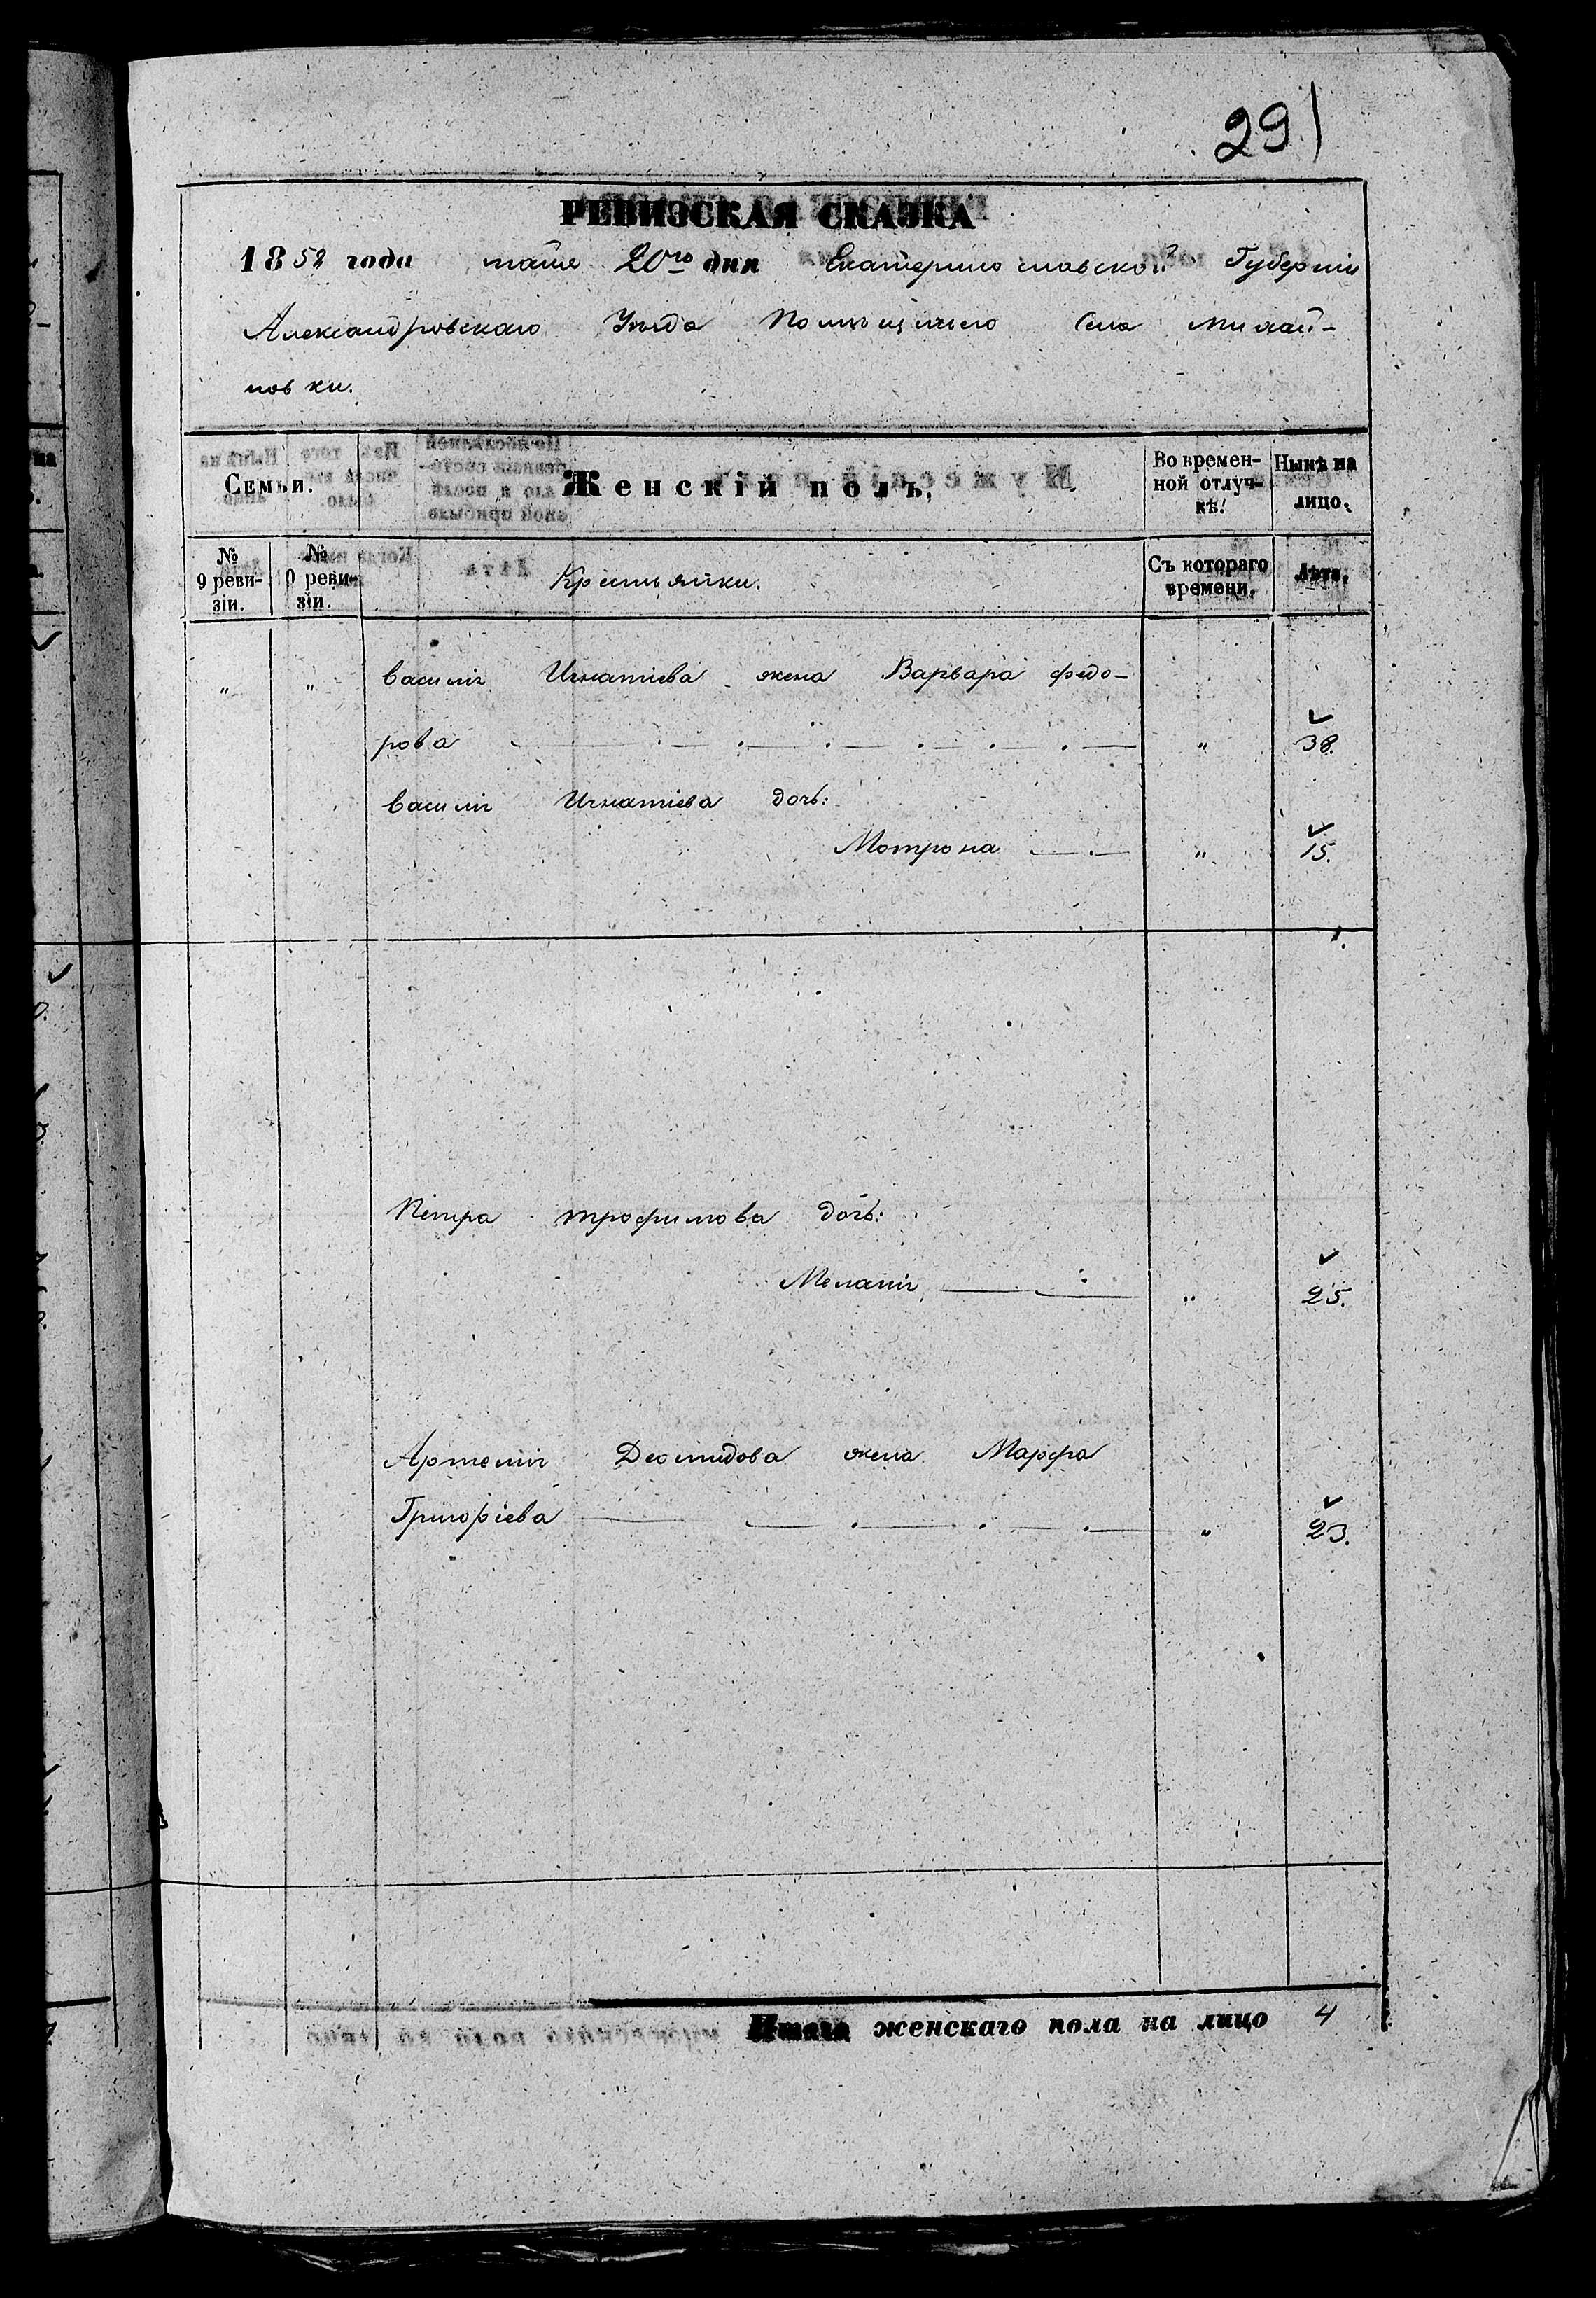 291
РЕВИЗСКАЯ СКАЗКА
1858 года маия 20го дня Екатеринославской Губерніи
Александровскаго Уѣзда Помѣщичьяго Села Михай-
ловки.
Семьи. Женскій полъ. Во времен-ной отлуч-кѣ. Нынѣ на лицо.
№ 9 реви-зіи. № 10 реви-зіи. Крестьянки. Съ котораго времени. Лѣта.
" " Василія Игнатіева жена Варвара Федо-
рова " 38.
Василія Игнатіева дочь:
Мотрона " 15.
Петра Трофимова дочь:
Меланія " 25.
Артемія Деомидова жена Марфа
Григоріева " 23.
Итого женскаго пола на лицо 4